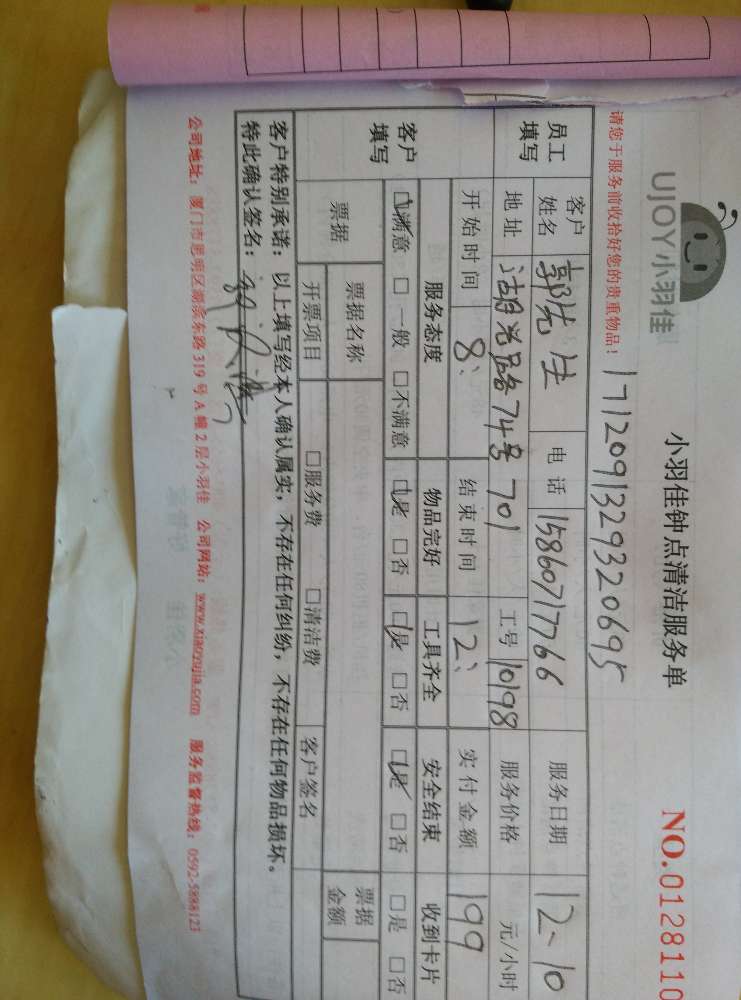 UJOY小羽佳
小羽佳钟点清洁服务单
NO.0128110
请您于服务前收拾好您的贵重物品！
1712091329320695
员工填写 客户姓名 郭先生 电话 15860717766 服务日期 12、10
地址 湖光路74号701 工号 10198 服务价格 元/小时
开始时间 8、 结束时间 12、 实付金额 199
客户填写 服务态度 物品完好 工具齐全 安全结束 收到卡片
□满意 □一般 □不满意 □是 □否 □是 □否 □是 □否 □是 □否
票据 票据名称 票据金额
开票项目 □服务费 □清洁费 客户签名
客户特别承诺：以上填写经本人确认属实，不存在任何纠纷，不存在任何物品损坏。
特此确认签名：
公司地址：厦门市思明区湖滨东路319号A幢2层小羽佳 公司网站：www.xiaoyujia.com 服务监督热线：0592-5888123